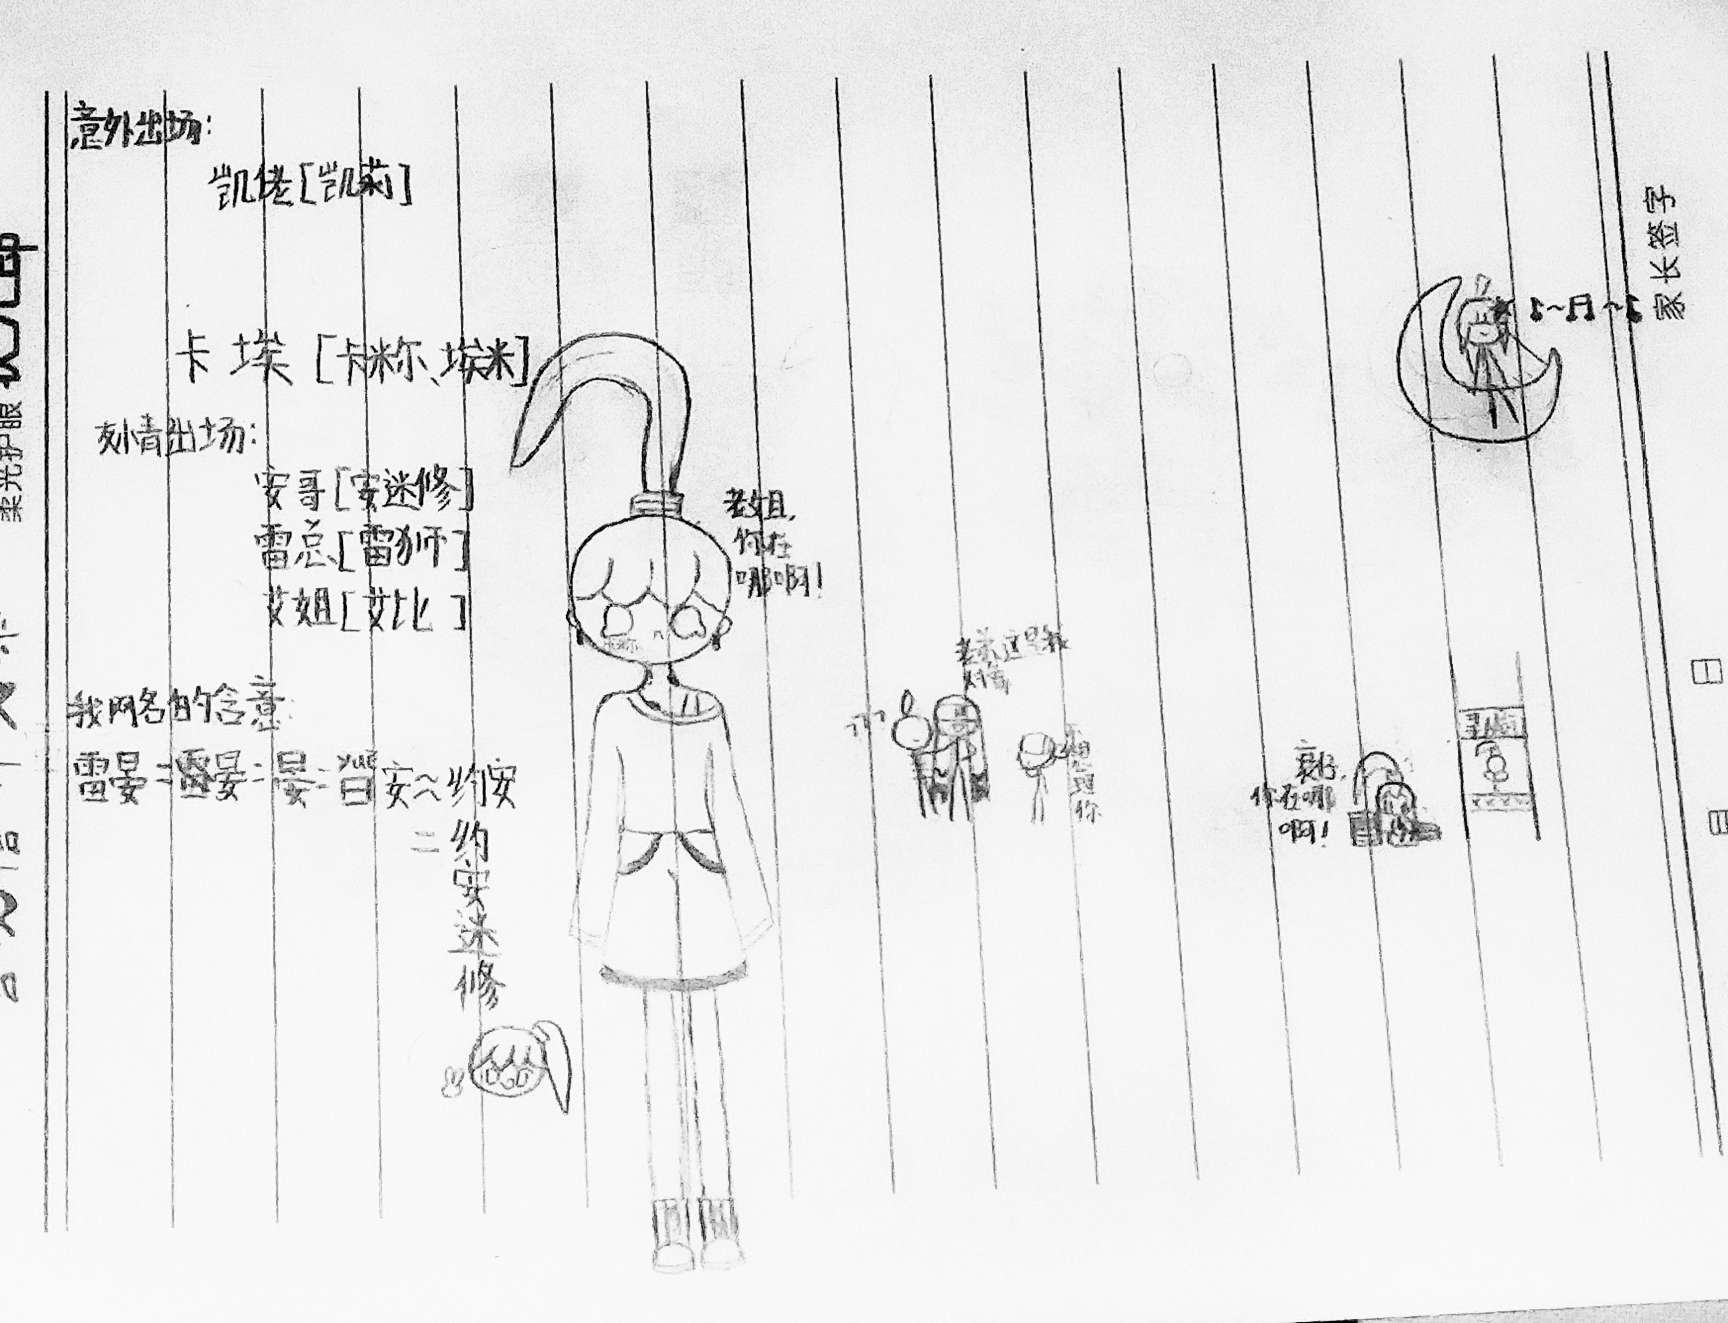 意外出场：
凯佬[凯莉]
卡 埃 [卡米尔、埃米]
剧情出场：
安哥[安迷修]
雷总[雷狮]
艾姐[艾比]
我网名的含意
雷晏=雷晏=晏=
yuē
曰安≈约安
=约
安
迷
修
老姐,
你在
哪啊!
老弟这是我
对
不
想
理
你
衰仔,
你在哪
啊!
寻
♪~♫~♪
家长签字
日
柔光护眼